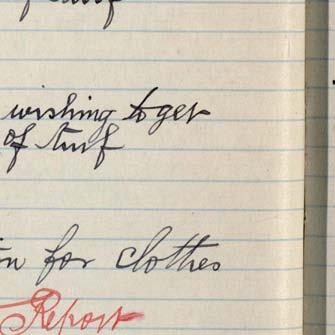 of turf
wishing to get
of turf
for clothes
Report